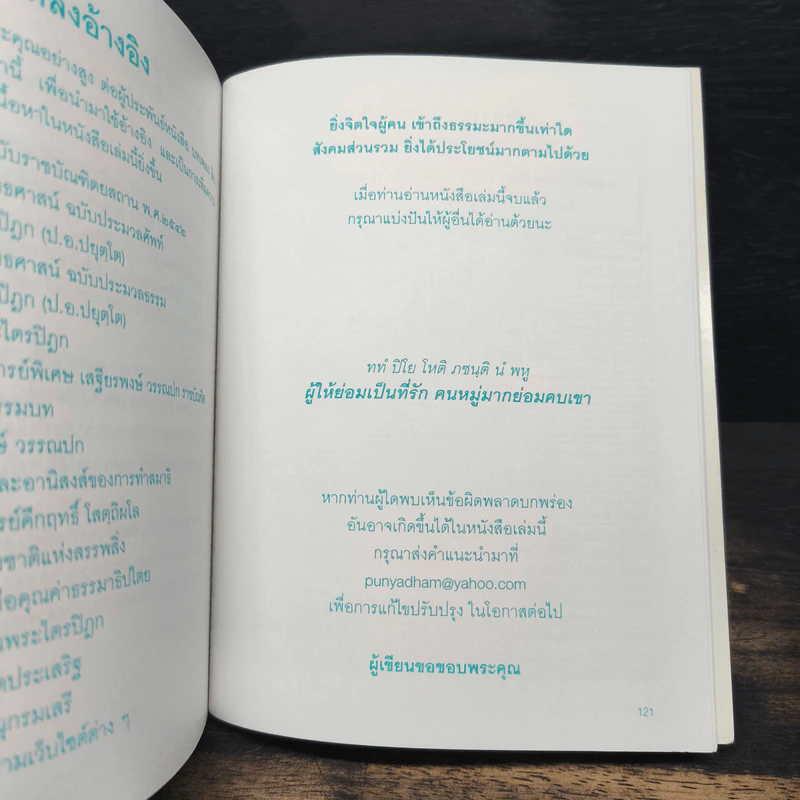 แหล่งอ้างอิง
ระคุณอย่างสูง ต่อผู้ประพันธ์หนังสือ
านี้ เพื่อนำมาใช้อ้างอิง และเป็นการ
นื้อหาในหนังสือเล่มนี้ยิ่งขึ้น
บับราชบัณฑิตยสถาน พ.ศ.๒๕๔๒
ธศาสน์ ฉบับประมวลศัพท์
ปิฎก (ป.อ.ปยุตฺโต)
ธศาสน์ ฉบับประมวลธรรม
ปิฎก (ป.อ.ปยุตฺโต)
ะไตรปิฎก
ารย์พิเศษ เสฐียรพงษ์ วรรณปก ราชบัณฑิต
รรมบท
ษ์ วรรณปก
ละอานิสงส์ของการทำสมาธิ
รย์คึกฤทธิ์ โสตฺถิผโล
รชาติแห่งสรรพสิ่ง
ือคุณค่าธรรมาธิปไตย
นพระไตรปิฎก
ดประเสริฐ
นุกรมเสรี
ามเว็บไซต์ต่าง ๆ
ยิ่งจิตใจผู้คน เข้าถึงธรรมะมากขึ้นเท่าใด
สังคมส่วนรวม ยิ่งได้ประโยชน์มากตามไปด้วย
เมื่อท่านอ่านหนังสือเล่มนี้จบแล้ว
กรุณาแบ่งปันให้ผู้อื่นได้อ่านด้วยนะ
ททํ ปิโย โหติ ภชนฺติ นํ พหู
ผู้ให้ย่อมเป็นที่รัก คนหมู่มากย่อมคบเขา
หากท่านผู้ใดพบเห็นข้อผิดพลาดบกพร่อง
อันอาจเกิดขึ้นได้ในหนังสือเล่มนี้
กรุณาส่งคำแนะนำมาที่
punyadham@yahoo.com
เพื่อการแก้ไขปรับปรุง ในโอกาสต่อไป
ผู้เขียนขอขอบพระคุณ
121